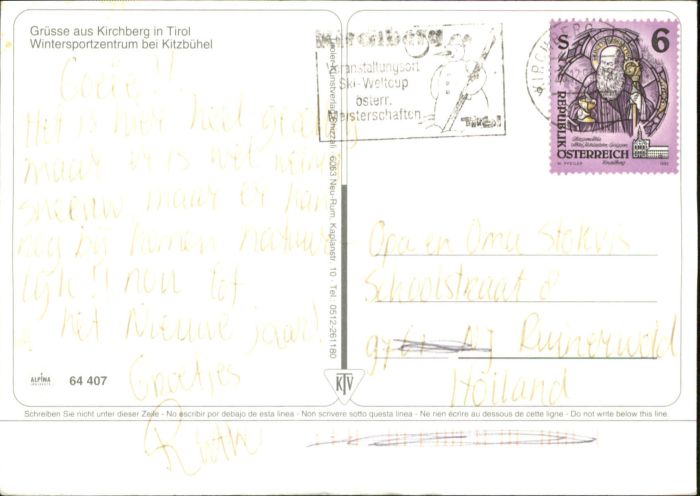 Grüsse aus Kirchberg in Tirol
Wintersportzentrum bei Kitzbühel
Hoi!!
Het is hier heel gezellig
maar er is wel weinig
sneeuw, maar er kan
nog bij komen natuur-
lijk!! nou tot
het Nieuwe jaar!
Groetjes
ALPINA
64 407
Tiroler Kunstverlag Chizzali · 6063 Neu-Rum, Kaplanstr. 10 - Tel.: 0512-261180
KTV
Kirchberg
Veranstaltungsort
Ski-Weltcup
österr.
Meisterschaften
Tirol
S 6
REPUBLIK
ÖSTERREICH
Opa en Oma Stokvis
Schoolstraat 8
Ruinerwold
Holland
Schreiben Sie nicht unter dieser Zeile - No escribir por debajo de esta linea - Non scrivere sotto questa linea - Ne rien écrire au dessous de cette ligne - Do not write below this line.